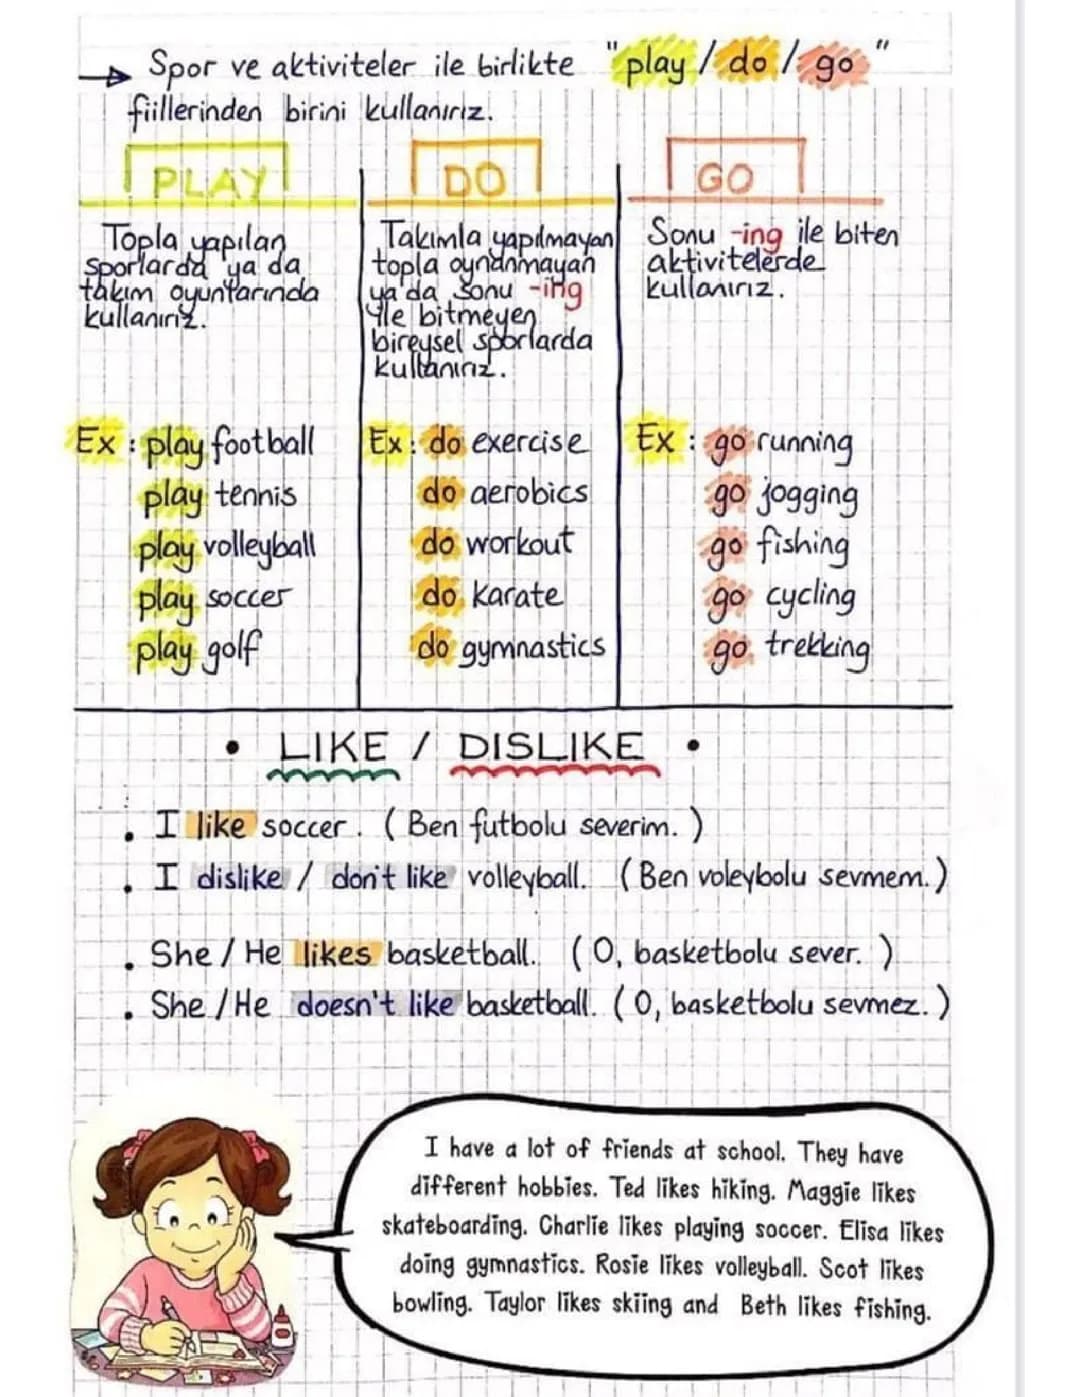 Spor ve aktiviteler ile birlikte "play / do / go"
fiillerinden birini kullanırız.
PLAY
Topla yapılan
sporlarda ya da
takım oyunlarında
kullanırız.
Ex : play football
play tennis
play volleyball
play soccer
play golf
DO
Takımla yapılmayan
topla oynanmayan
ya da sonu -ing
ile bitmeyen
bireysel sporlarda
kullanırız.
Ex : do exercise
do aerobics
do workout
do karate
do gymnastics
GO
Sonu -ing ile biten
aktivitelerde
kullanırız.
Ex : go running
go jogging
go fishing
go cycling
go trekking
• LIKE / DISLIKE •
. I like soccer. ( Ben futbolu severim. )
. I dislike / don't like volleyball. ( Ben voleybolu sevmem. )
. She / He likes basketball. ( O, basketbolu sever. )
. She / He doesn't like basketball. ( O, basketbolu sevmez. )
I have a lot of friends at school. They have
different hobbies. Ted likes hiking. Maggie likes
skateboarding. Charlie likes playing soccer. Elisa likes
doing gymnastics. Rosie likes volleyball. Scot likes
bowling. Taylor likes skiing and Beth likes fishing.